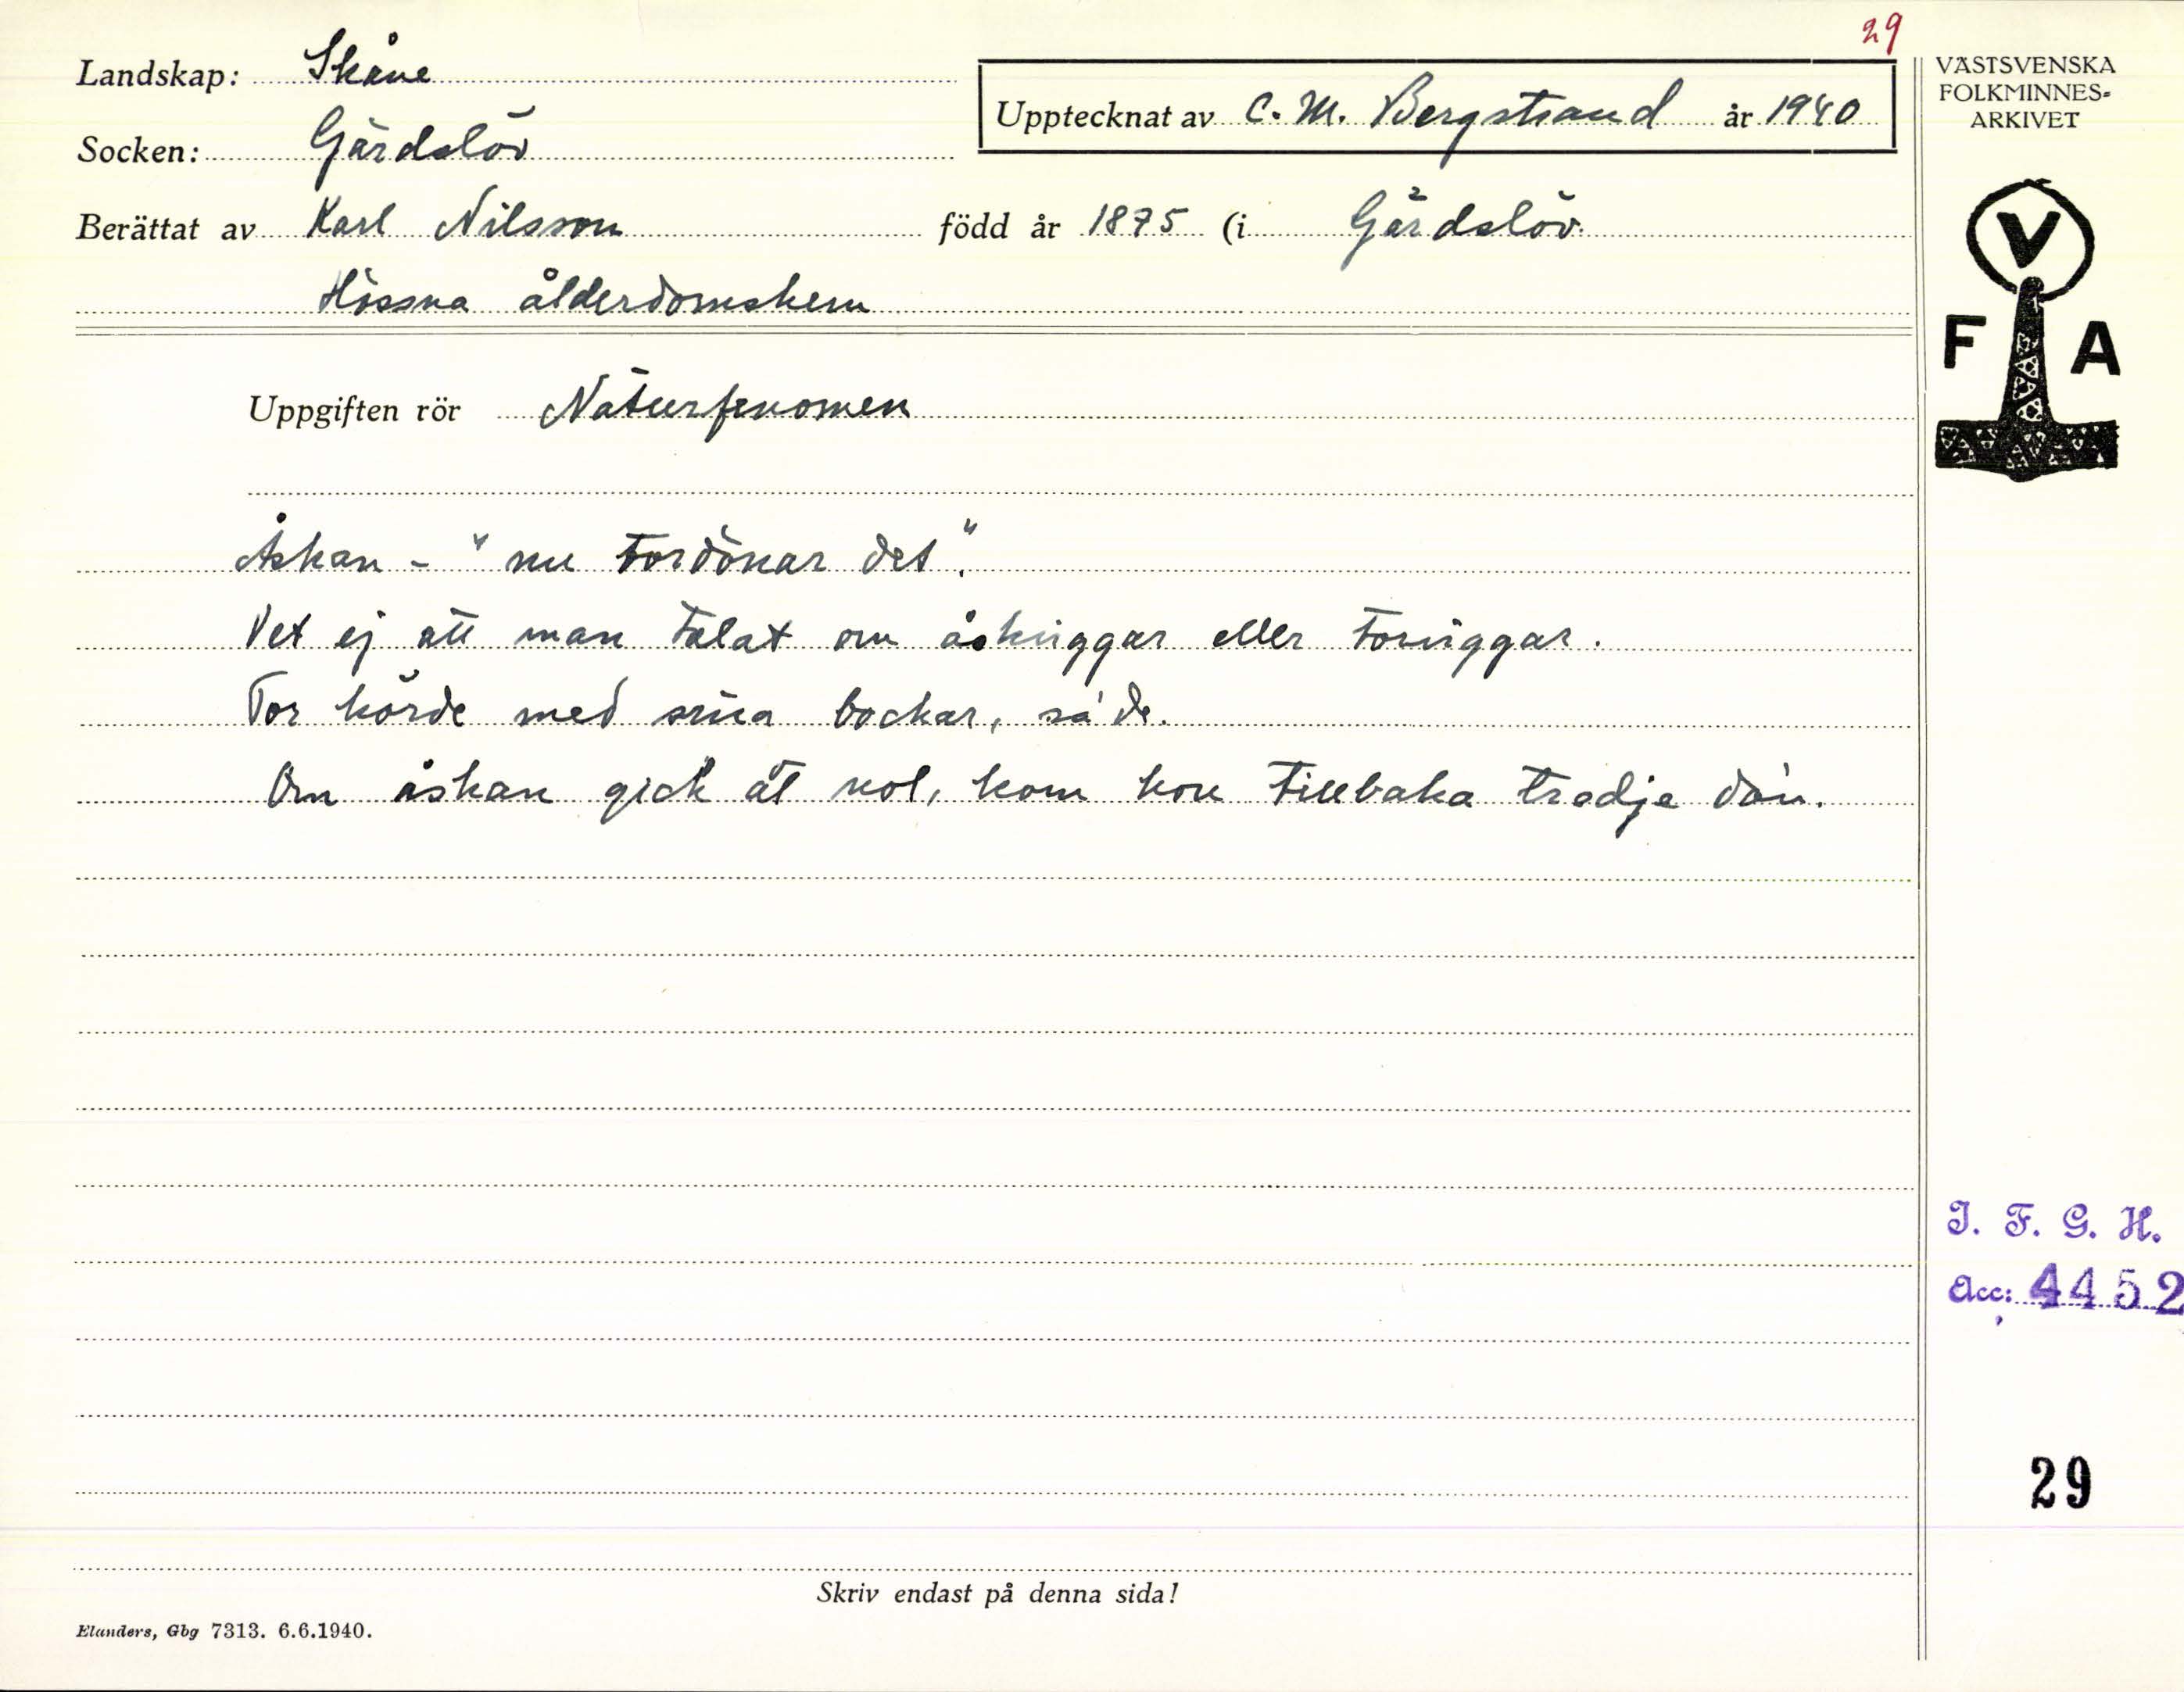 29
Landskap: Skåne
Upptecknat av C. M. Bergstrand år 1940
Socken: Gärdslöv
Berättat av Karl Nilsson född år 1875 (i Gärdslöv
Hössna ålderdomshem
VÄSTSVENSKA
FOLKMINNES-
ARKIVET
V
F A
Uppgiften rör Naturfenomen
Åskan - "nu tordönar det".
Vet ej att man talat om åskviggar eller torviggar.
Tor körde med sina bockar, sa' de.
Om åskan gick åt nol, kom hon tillbaka tredje dan.
I. F. G. H.
Acc: 4452
29
Skriv endast på denna sida!
Elanders, Gbg 7313. 6.6.1940.